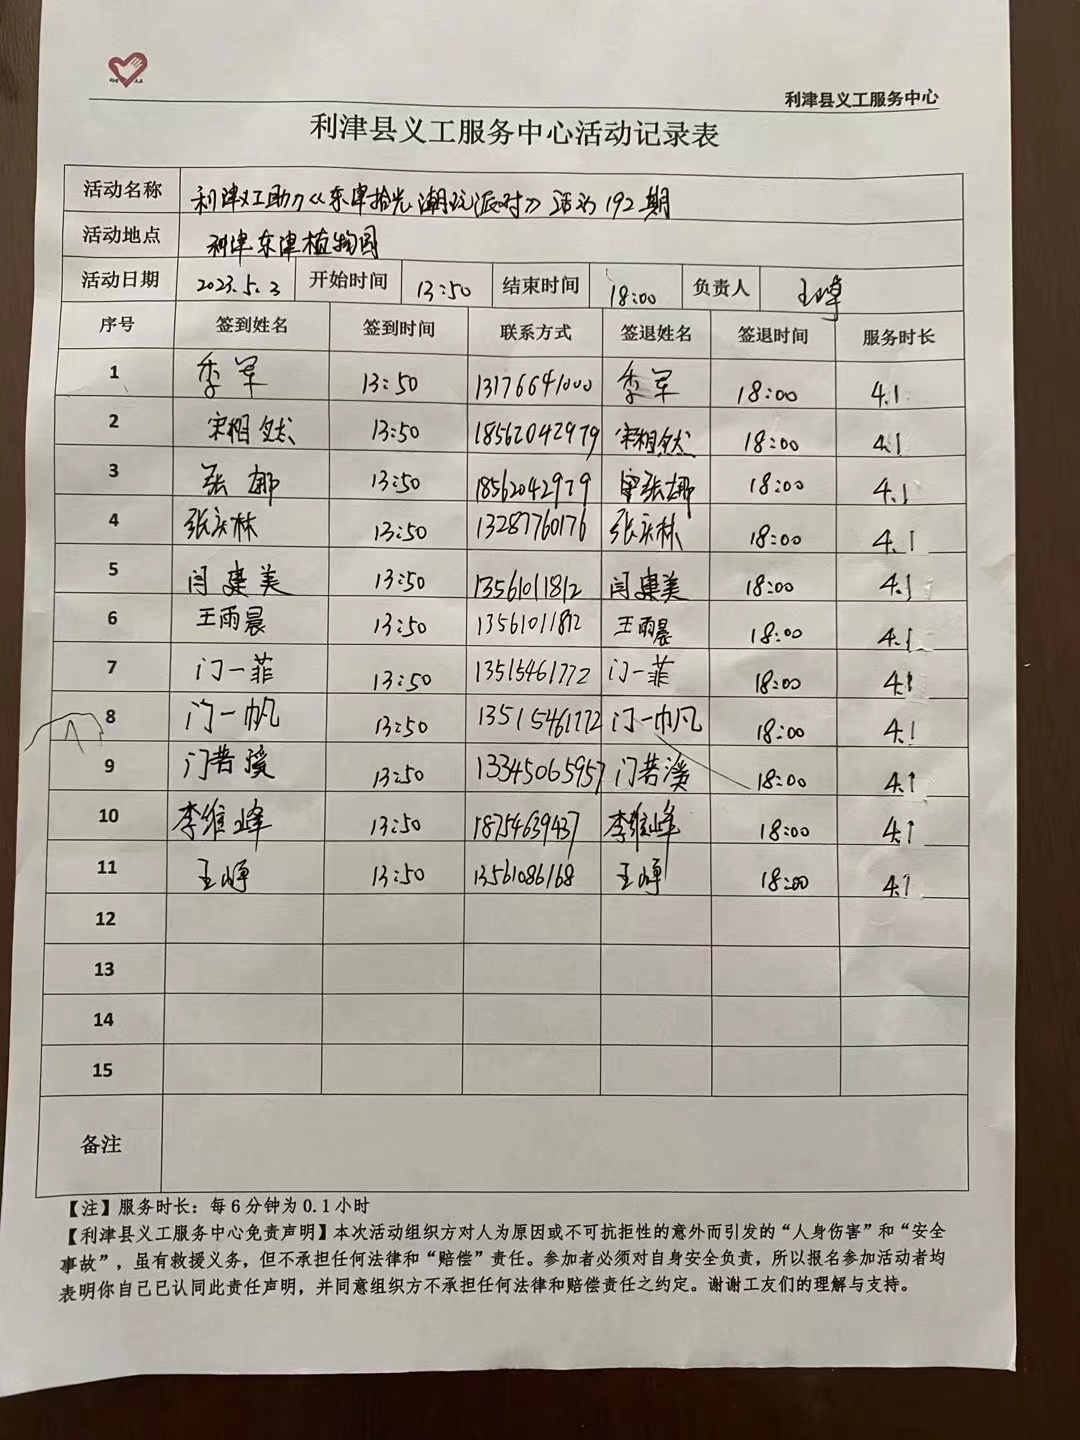 利津县义工服务中心
利津县义工服务中心活动记录表
活动名称 利津义工助力《东津拾光潮玩派对》活动192期
活动地点 利津东津植物园
活动日期 2023.5.3 开始时间 13:50 结束时间 18:00 负责人 王峥
序号 签到姓名 签到时间 联系方式 签退姓名 签退时间 服务时长
1 李军 13:50 13176641000 李军 18:00 4.1
2 宋相然 13:50 18562042979 宋相然 18:00 4.1
3 张娜 13:50 18562042979 张娜 18:00 4.1
4 张庆林 13:50 13287760176 张庆林 18:00 4.1
5 闫建美 13:50 13561011812 闫建美 18:00 4.1
6 王雨晨 13:50 13561011812 王雨晨 18:00 4.1
7 门一菲 13:50 13515461772 门一菲 18:00 4.1
8 门一帆 13:50 13515461772 门一帆 18:00 4.1
9 门若溪 13:50 13345065957 门若溪 18:00 4.1
10 李维峰 13:50 18754639437 李维峰 18:00 4.1
11 王峥 13:50 13561086168 王峥 18:00 4.1
12
13
14
15
备注
【注】服务时长：每6分钟为0.1小时
【利津县义工服务中心免责声明】本次活动组织方对人为原因或不可抗拒性的意外而引发的“人身伤害”和“安全
事故”，虽有救援义务，但不承担任何法律和“赔偿”责任。参加者必须对自身安全负责，所以报名参加活动者均
表明你自己已认同此责任声明，并同意组织方不承担任何法律和赔偿责任之约定。谢谢工友们的理解与支持。